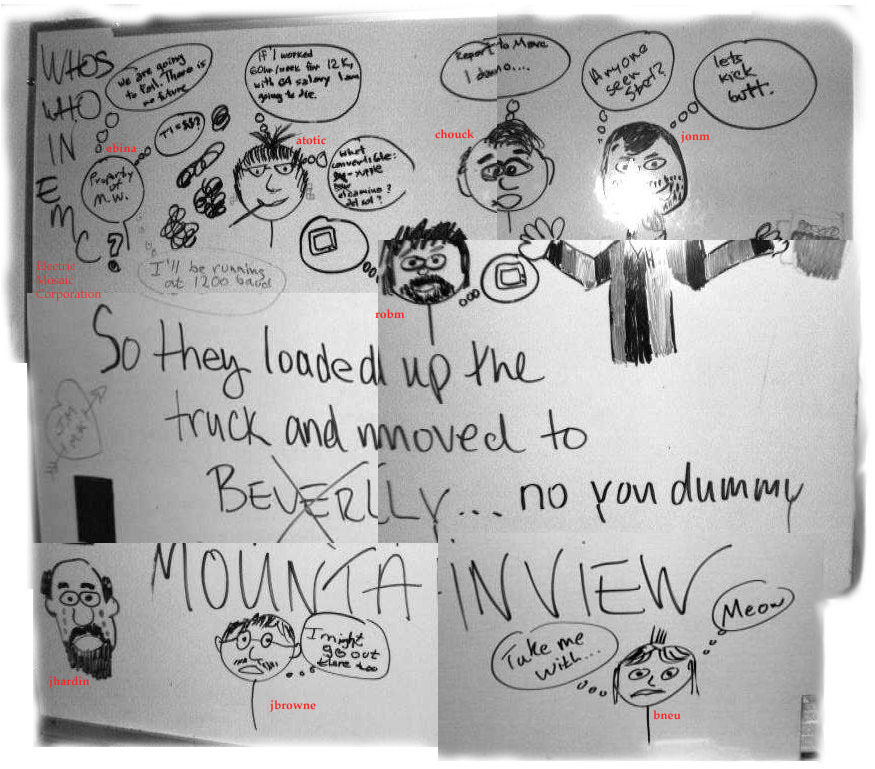 WHOS
WHO
IN
EMC?
Electric
Mosaic
Corporation
we are going
to fail. There is
no future
ebina
Property
of
M.W.
TI = $$?
If I worked
60hr/week for 12K,
with GA salary I am
going to die.
atotic
what
convertible:
del sol?
Report to Move
1 dumo....
chouck
Anyone
seen
lets
kick
butt.
jonm
I'll be running
at 1200 baud
robm
So they loaded up the
truck and moved to
BEVERLLY... no you dummy
MOUNTAINVIEW
JIM
jhardin
I might
go out
there too
jbrowne
Take me
with...
Meow
bneu